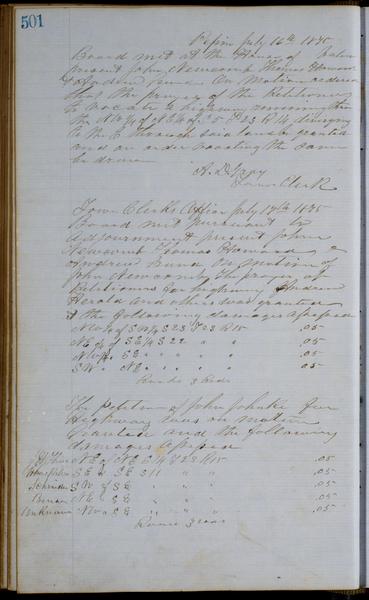 501
Pepin July 16th 1885
Board met at the House of
present John Newcomb Thomas
& Andrew Bund On Motion ordered
that the prayer of the Petitioners
to vacate a highway running thro
the NW ¼ of NE ¼ of S 5 T 23 R 14
said lands be granted
and an order vacating the same
be drawn
A. D. Gray
Town Clerk
Town Clerks Office July 17th 1885
Board met pursuant to
adjournment present John
Newcomb Thomas &
Andrew Bund On Motion of
John Newcomb the prayer of
Petitioners for highway Andrew
Herold and others was granted
& the following damages assessed
NW of SW ¼ S 23 T 23 R 15 .05
NE of SE ¼ S 22 " " .05
NW SE " " " " .05
SW " NE " " " " .05
Road 3 Rods
The Petition of John Johnke for
Highway was on motion
Granted and the following
damages assessed
NE of NE S 14 T 23 R 15 .05
SE " SE S 11 " " .05
Schneider SW of SE " " " .05
NE " SE " " " .05
Unknown NW " SE " " " .05
Road 3 rods